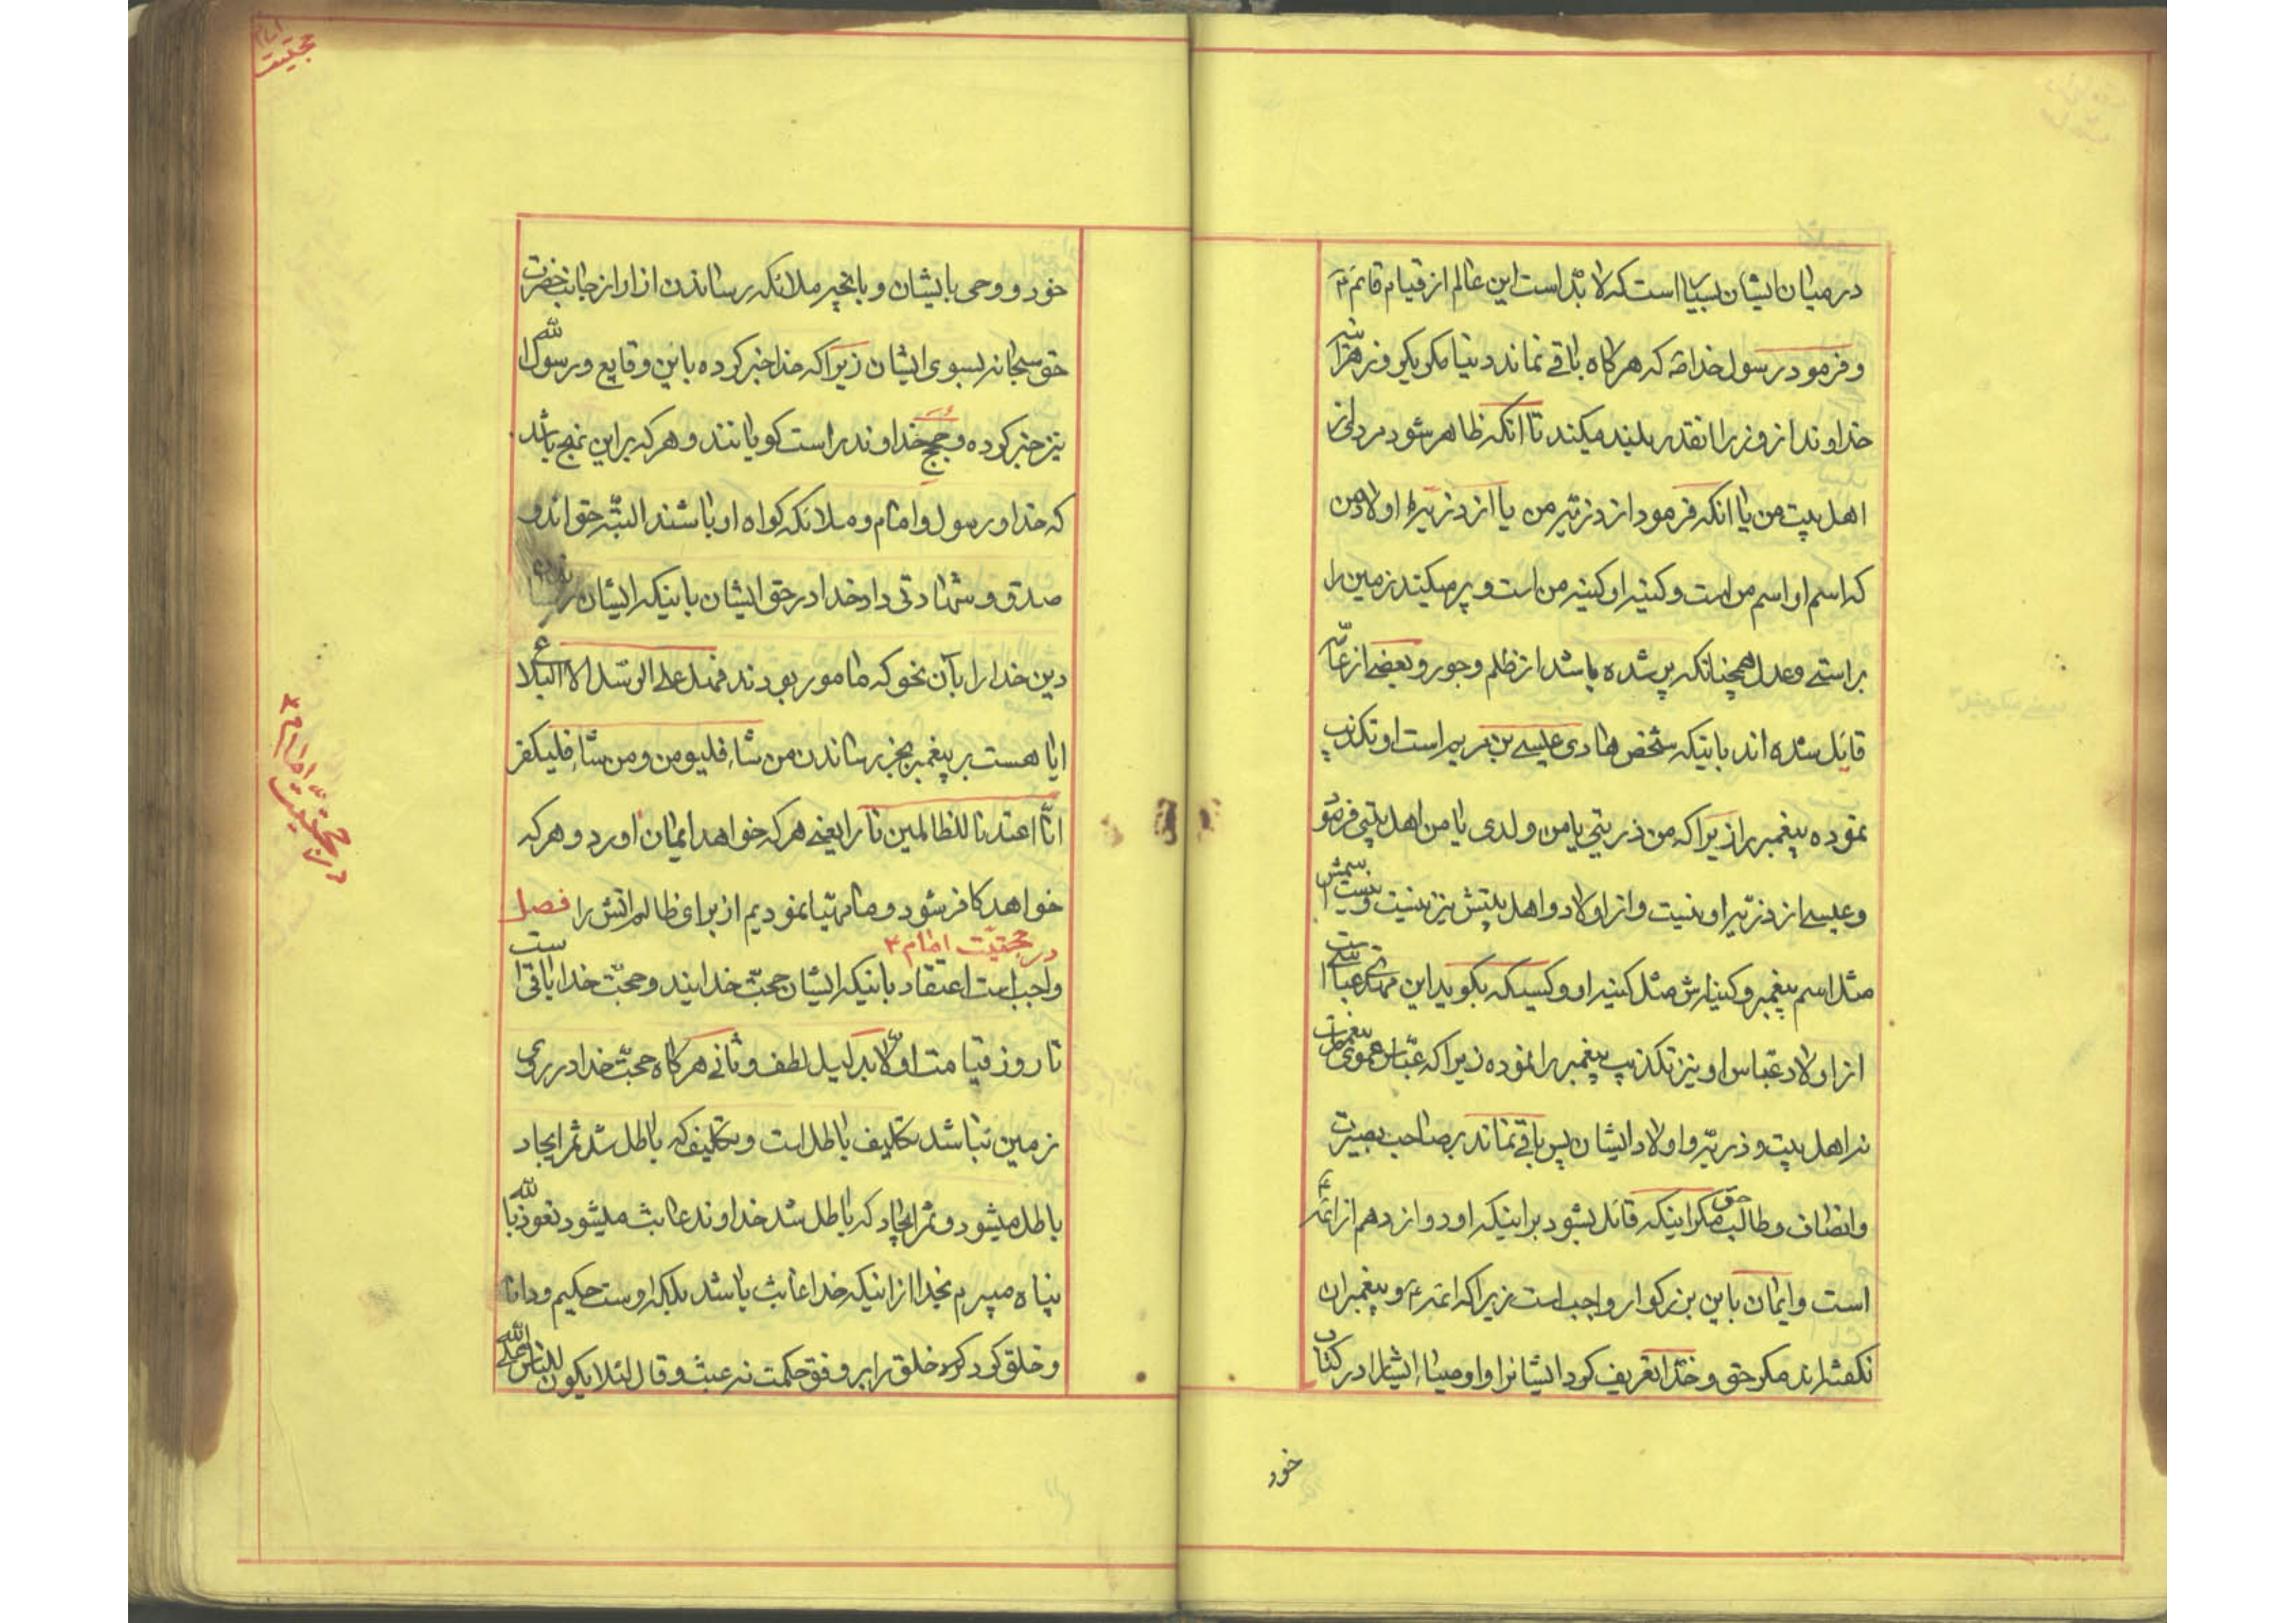 در میان ایشان بسیار است که لابد است این عالم از قیام قائم ع
و فرمود رسول خدا ص که هرگاه باقی نماند دنیا مگر یکروز هرآینه
خداوند انروز را انقدر بلند میکند تا انکه ظاهر شود مردی از
اهل بیت من یا انکه فرمود از ذریّه من یا از ذریّه اولاد من
که اسم او اسم من است و کنیه او کنیه من است و پر میکند زمین را
براستی و عدل همچنانکه پر شده باشد از ظلم و جور و بعضی از عامّه
قایل شده اند باینکه شخص هادی عیسی بن مریم است او تکذیب
نموده پیغمبر را زیرا که من ذریتی یا من ولدی یا من اهل بیتی فرموده
و عیسی از ذریّه او نیست و از اولاد و اهل بیتش نیز نیست و نیست اسمش
مثل اسم پیغمبر و کنیه اش مثل کنیه او و کسیکه بگوید این مهدی عباسی است
از اولاد عبّاس او نیز تکذیب پیغمبر را نموده زیرا که عبّاس عموی پیغمبر است
نه اهل بیت و ذریّه و اولاد ایشان پس باقی نماند بر صاحب بصیرت
و انصاف و طالب حق مگر اینکه قائل بشود بر اینکه او دوازدهم از ائمه ع
است و ایمان باین بزرگوار واجب است زیرا که ائمه ع و پیغمبران
نگفته اند مگر حق و خدا تعریف کرد ایشانرا و اوصیاء ایشانرا در کتاب
خود
حجّیت
خود و وحی بایشان و بانچیز ملائکه رساندن از او از جانب حضرت
حق سبحانه بسوی ایشان زیرا که خدا خبر کرده باین وقایع و رسول الله
نیز خبر کرده و حجج خداوند راست گویانند و هر که بر این نهج باشد
که خدا و رسول و امام و ملائکه گواه او باشند البتّه حق اند و
صدق و شهادتی داد خدا در حق ایشان باینکه ایشان
دین خدا را بآن نحو که مامور بودند فهل علی الرّسل الا البلاغ
ایا هست بر پیغمبر بجز رساندن من شاء فلیومن و من شاء فلیکفر
انّا اعتدنا للظالمین نارا یعنی هر که خواهد ایمان اورد و هر که
خواهد کافر شود و ما مهیّا نمودیم از برای ظالم اتش را فصل
در حجّیّت امام ع
واجب است اعتقاد باینکه ایشان حجّت خدایند و حجّت خدا باقی است
تا روز قیامت اولا بدلیل لطف و ثانی هرگاه حجّت خدا در روی
زمین نباشد تکلیف باطل است و تکلیف که باطل شد ثمر ایجاد
باطل میشود و ثمر ایجاد که باطل شد خداوند عابث میشود نعوذ بالله
پناه میبرم بخدا از اینکه خدا عابث باشد بلکه اوست حکیم و دانا
و خلق کرد خلق را بر وفق حکمت نه عبث و قال لئلا یکون للناس علی الله
در حجّیّت امام ع